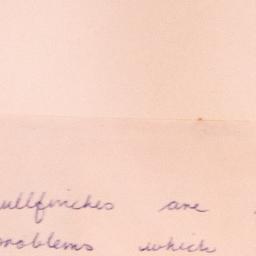 ullfinches are
problems which